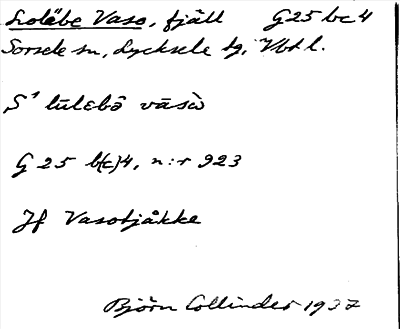 Luläbe Vaso, fjäll G25 bc 4
Sorsele sn, Lycksele tg, Vbt l.
S¹ lūlebə vāsò
G 25 b(c)4, n:r 923
Jf Vasotjåkke
Björn Collinder 1937